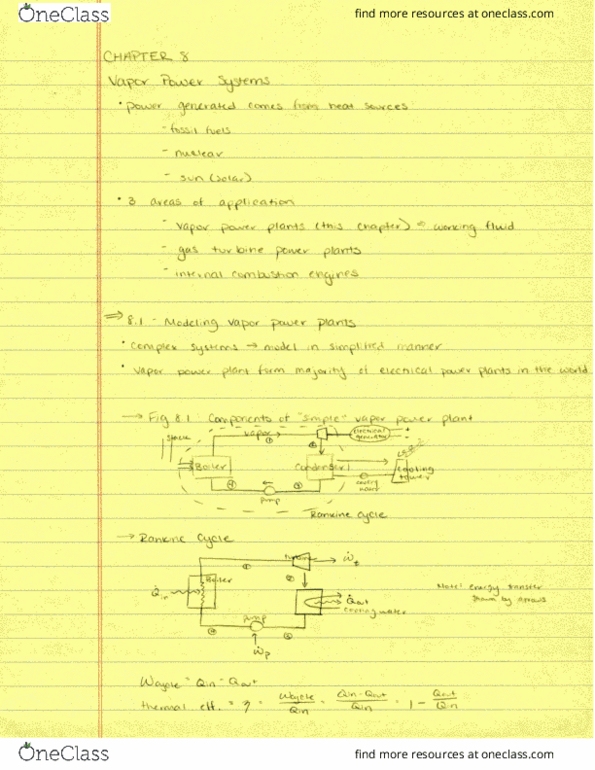 OneClass
find more resources at oneclass.com
CHAPTER 8
Vapor Power Systems
• power generated comes from heat sources
- fossil fuels
- nuclear
- sun (solar)
• 3 areas of application
- vapor power plants (this chapter) working fluid
- gas turbine power plants
- internal combustion engines
⇒ 8.1 - Modeling vapor power plants
• complex systems → model in simplified manner
• vapor power plant form majority of electrical power plants in the world
→ Fig 8.1: Components of "simple" vapor power plant
stack
vapor
①
electrical generator
②
Boiler
Condenser
cooling tower
④
③
pump
cooling water
Rankine cycle
→ Rankine Cycle
turbine
Ẇt
①
Boiler
②
Q̇in
Q̇out
cooling water
Note! energy transfer
shown by arrows
pump
④
③
Ẇp
Wcycle = Qin - Qout
thermal eff. = η = Wcycle/Qin = Qin - Qout/Qin = 1 - Qout/Qin
OneClass
find more resources at oneclass.com